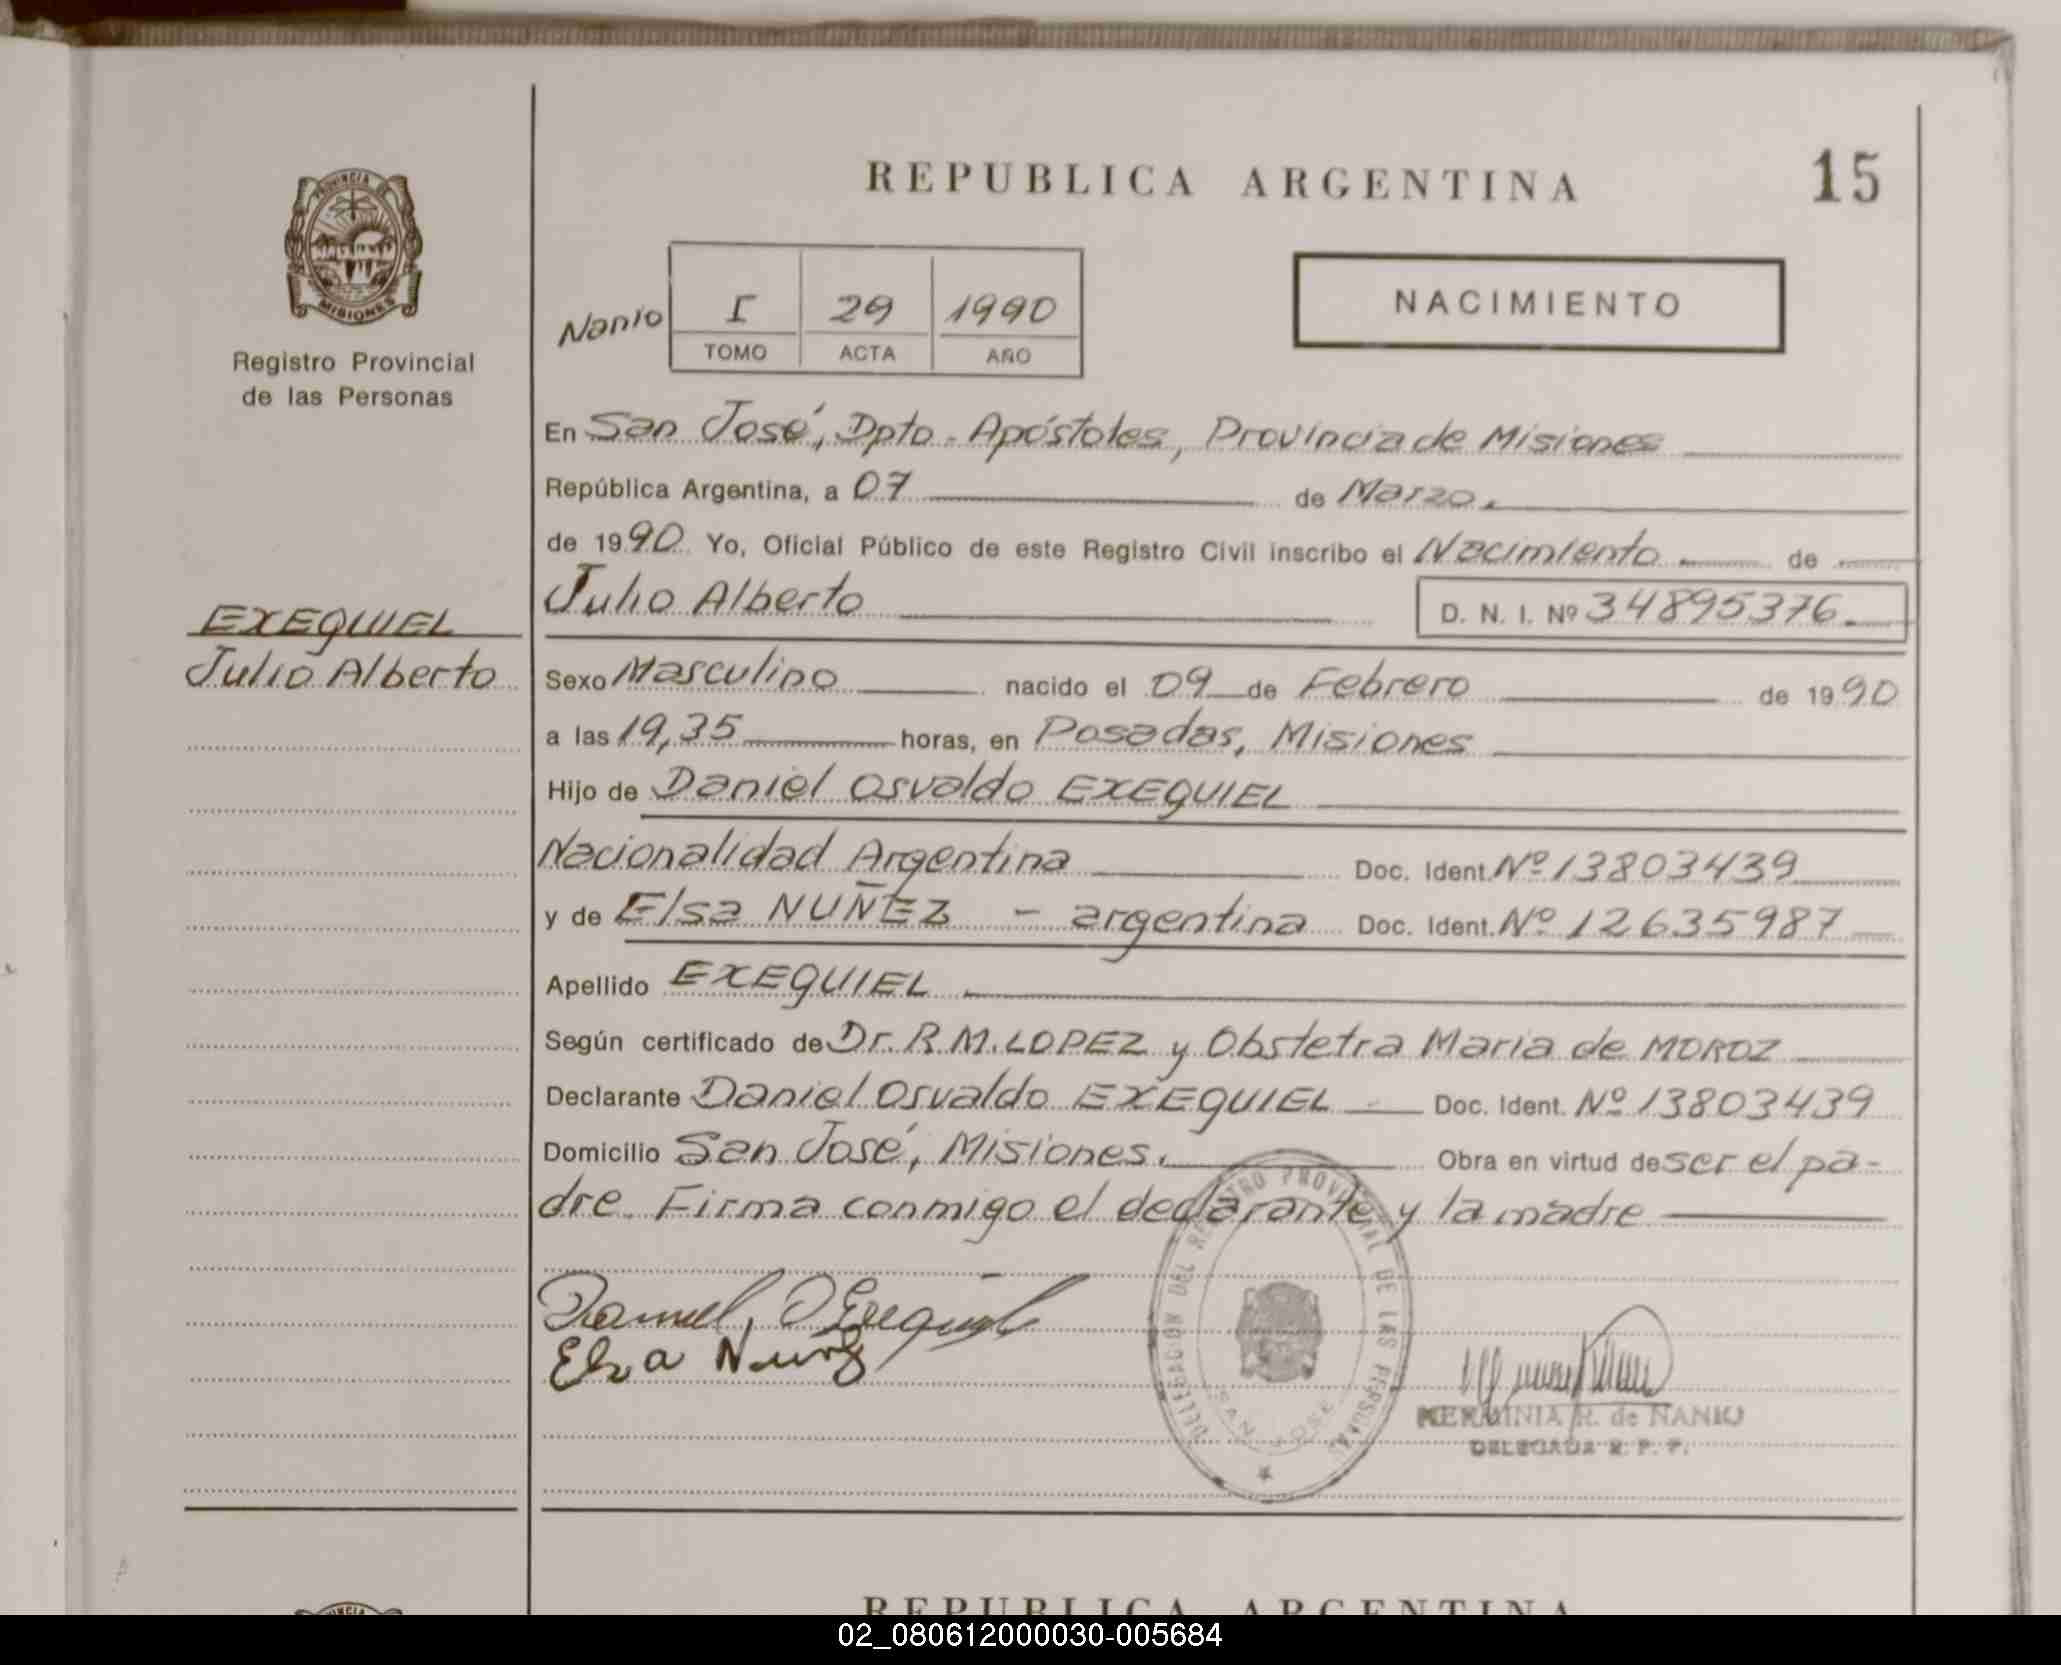 REPUBLICA ARGENTINA
15
PROVINCIA DE
MISIONES
Registro Provincial
de las Personas
Nanio
I
29
1990
TOMO
ACTA
AÑO
NACIMIENTO
En San José, Dpto. Apóstoles, Provincia de Misiones
República Argentina, a 07 de Marzo.
de 1990 Yo, Oficial Público de este Registro Civil inscribo el Nacimiento de
Julio Alberto
D. N. I. Nº 34895376.
EXEQUIEL
Julio Alberto
Sexo Masculino nacido el 09 de Febrero de 1990
a las 19,35 horas, en Posadas, Misiones
Hijo de Daniel Osvaldo EXEQUIEL
Nacionalidad Argentina Doc. Ident. Nº 13803439
y de Elsa NUÑEZ - argentina Doc. Ident. Nº 12635987
Apellido EXEQUIEL
Según certificado de Dr. R.M. LOPEZ y Obstetra Maria de MOROZ
Declarante Daniel Osvaldo EXEQUIEL Doc. Ident. Nº 13803439
Domicilio San José, Misiones. Obra en virtud de ser el pa-
dre. Firma conmigo el declarante y la madre
Daniel O Exequiel
Elsa Nuñez
DELEGACION DEL REGISTRO PROVINCIAL DE LAS PERSONAS
SAN JOSE
HERMINIA R. de NANIO
DELEGADA R. P. P.
REPUBLICA ARGENTINA
02_080612000030-005684